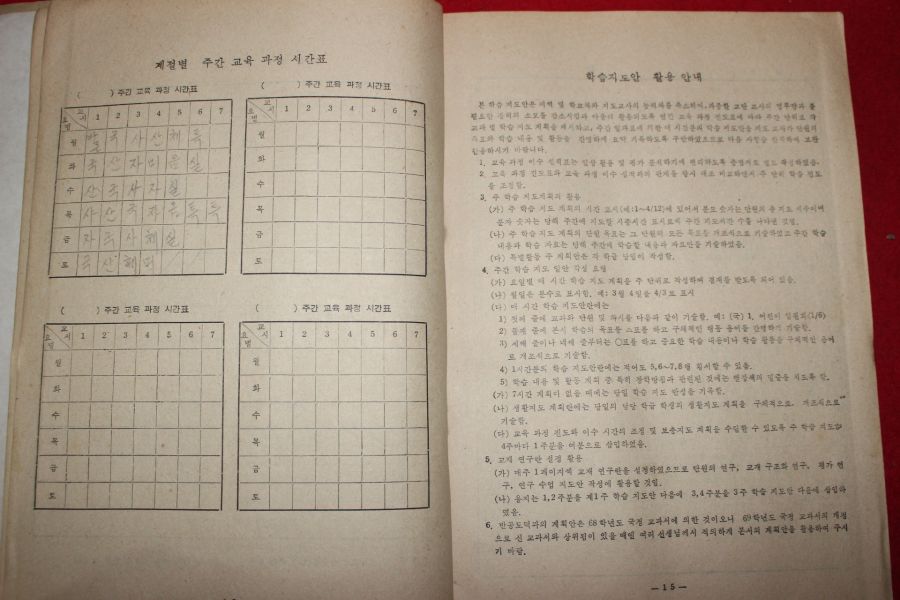 계절별 주간 교육 과정 시간표
( ) 주간 교육 과정 시간표
교시 1 2 3 4 5 6 7
요일
월 국 사 산 체 특
화 국 산 자 미 음 실
수 산 국 사 자 실
목 사 산 국 자 음 특 특
금 자 국 사 체 실
토 국 산
( ) 주간 교육 과정 시간표
교시 1 2 3 4 5 6 7
요일
월
화
수
목
금
토
( ) 주간 교육 과정 시간표
교시 1 2 3 4 5 6 7
요일
월
화
수
목
금
토
( ) 주간 교육 과정 시간표
교시 1 2 3 4 5 6 7
요일
월
화
수
목
금
토
학습지도안 활용 안내
본 학습 지도안은 지역 및 학교차와 지도교사의 능력차를 축소하여, 과중한 교단 교사의 업무량과 불
필요한 정력의 소모를 감소시킴과 아울러 활용되도록 현긴 교육 과정 진도표에 따라 주간 단위로 각
교과 별 학습 지도 계획을 제시하고, 주간 일과표에 의한 매 시간분의 학습 지도안을 지도 교사가 단원의
목표와 학습 내용 및 활동을 간명하게 요약 기록하도록 구안하였으므로 다음 사항을 참작하여 보완
활용하시기 바랍니다.
1. 교육 과정 이수 실적표는 일상 활용 및 평가 분석하기에 편리하도록 증명지로 별도 책정하였음.
2. 교육 과정 진도표와 교육 과정 이수 실적과의 관계를 항시 대조 비교하면서 주 단위 학습 진도
를 조정함.
3. 주 학습 지도계획과 활용
(가) 주 학습 지도 계획의 시간 교시(예:1~4/12)에 있어서 분모 숫자는 단원의 총 지도 시수이며
분자 숫자는 당해 주간에 지도할 시종시간 표시로서 주간 지도시간 수를 나타낸 것임.
(나) 주 학습 지도 계획의 단원 목표는 그 단원의 모든 목표를 개조식으로 기술하였고 주간 학습
내용과 학습 자료는 당해 주간에 학습할 내용과 자료만을 기술하였음.
(다) 특별활동 주 계획안은 각 학급 담임이 작성함.
4. 주간 학습 지도 일안 작성 요령
(가) 요일별 매 시간 학습 지도 계획을 주 단위로 작성하여 결재를 받도록 되어 있음.
(나) 월일은 분수로 표시함. 예: 3월 4일을 4/3로 표시
(다) 매 시간 학습 지도안란에는
1) 첫째 줄에 교과와 단원 및 차시를 다음과 같이 기술함. 예: (국) 1. 어린이 일원회(1/6)
2) 둘째 줄에 본시 학습의 목표를 스로를 하고 구체적인 행동 용어를 간명하게 기술함.
3) 세째 줄이나 네째 줄부터는 ○표를 하고 중요한 학습 내용이나 학습 활동을 구체적인 순서
로 개조식으로 기술함.
4) 1시간분의 학습 지도안란에는 적어도 5,6~7,8행 횡서할 수 있음.
5) 학습 내용 및 활동 계획 중 특히 장학방침과 관련된 것에는 빨강색의 밑줄을 치도록 함.
(가) 7시간 계획이 없을 때에는 당일 학습 지도 반성을 기록함.
(나) 생활지도 계획란에는 담임의 담당 학급 학생의 생활지도 계획을 구체적으로, 개조식으로
기술함.
(다) 교육 과정 진도와 이수 시간의 조정 및 보충지도 계획을 수립할 수 있도록 주 학습 지도안
4주마다 1주분을 여분으로 삽입하였음.
5. 교재 연구란 설정 활용
(가) 매주 1페이지씩 교재 연구란을 설정하였으므로 단원의 연구, 교재 구조화 연구, 평가 연
구, 연구 수업 지도안 작성에 활용할 것임.
(나) 용지는 1,2주분을 제1주 학습 지도안 다음에 3,4주분을 3주 학습 지도안 다음에 삽입하
였음.
6. 반공도덕과의 계획안은 68학년도 국정 교과서에 의한 것이오나 69학년도 국정 교과서의 개정
으로 신 교과서와 상위점이 있을 때엔 여러 선생님께서 적의하게 본서의 계획안을 활용하여 주시
기 바람.
— 15 —